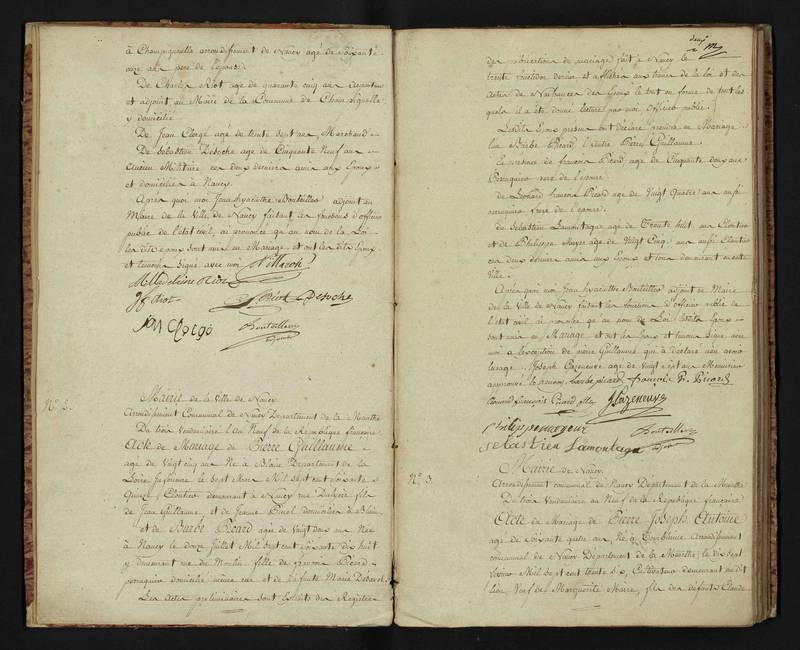 à Champigneulle arrondissement de Nancy agé de soixante
onze ans pere de l'epouse
De Charles Riot agé de quarante cinq ans
et adjoint au Maire de la Commune de Champigneulle
y domicilié
De Jean Clergé agé de trente sept ans Marchand
De Sebastien Desoche age de Cinquante Neuf ans
ancien Militaire ces deux derniers amis aux Epoux
et domiciliés à Nancy.
Après quoi moi Jean hyacinthe Bouteiller adjoint au
Maire de la Ville de Nancy faisant les fonctions d'officier
public de l'état civil, ai prononcé qu au nom de la Loi
les dits epoux sont unis en Mariage et ont les dits Epoux
et temoins signé avec moi
Riot Desoche
Bouteiller
adjoint
N.° 2.
Mairie de la Ville de Nancy
Arrondissement Communal de Nancy Departement de la Meurthe
Du trois Vendemiaire l'An Neuf de la Republique francaise
Acte de Mariage de Pierre Guillaume
agé de Vingt cinq ans Né à Departement de la
Loire inferieure le sept Mars Mil sept cent soixante
Quinze, Cloutier demeurant à Nancy rue fils
de Jean Guillaume, et de Jeanne domiciliés à
et de Barbe Picard agée de Vingt deux ans Née
à Nancy le douze Juillet Mil sept cent soixante dix huit
y demeurant rue de fille de francois Picard
perruquier domicilié même rue et de défunte Marie
Les actes preliminaires sont Extraits des Registres
deux
des publication de mariage fait à Nancy le
trente fructidor dernier et affichés aux termes de la loi et des
actes de Naissances des Epoux le tout en forme de tout les
quels il a été donné lecture par moi officier public.
Lesdits Epoux presens ont déclaré prendre en Mariage
l'un Barbe Picard l'autre Pierre Guillaume.
En presence de francois Picard age de Cinquante deux ans
Perruquier pere de l'epouse
de Leonard francois Picard age de Vingt Quatre ans aussi
perruquier frere de l'epouse
de Sebastien Lamontagne agé de Trente huit ans Cloutier
et de Philippe Moyeur agé de Vingt Cinq ans aussi Cloutier
ces deux derniers amis aux Epoux et tous demeurant en cette
Ville.
Après quoi moi Jean hyacinthe Bouteiller adjoint au Maire
de la Ville de Nancy faisant les fonctions d'officier public de
l'état civil ai prononcé qu au nom de la Loi lesdits Epoux
sont unis en Mariage et ont les Epoux et temoins signé avec
moi a l'exception de pierre Guillaume qui à déclaré n'en avoir
l'usage. Joseph Cazeneuve agé de Vingt sept ans Menuisier
approuvé barbe picard françois P. Picard
Léonard françois Picard J Cazeneuve
philippe moyeur Bouteiller
sebastien Lamontagne adjoint
N.° 3.
Mairie de Nancy.
Arrondissement communal de Nancy Departement de la Meurthe
Du trois Vendemiaire an Neuf de la Republique francaise
Acte de Mariage de Pierre Joseph Antoine
agé de soixante quatre ans, Né à arrondissement
communal de Nancy Departement de la Meurthe, le dix sept
Mil sept cent trente six, Cultivateur demeurant au dit
lieu, Veuf de Marguerite Maire, fils des défunts Claude